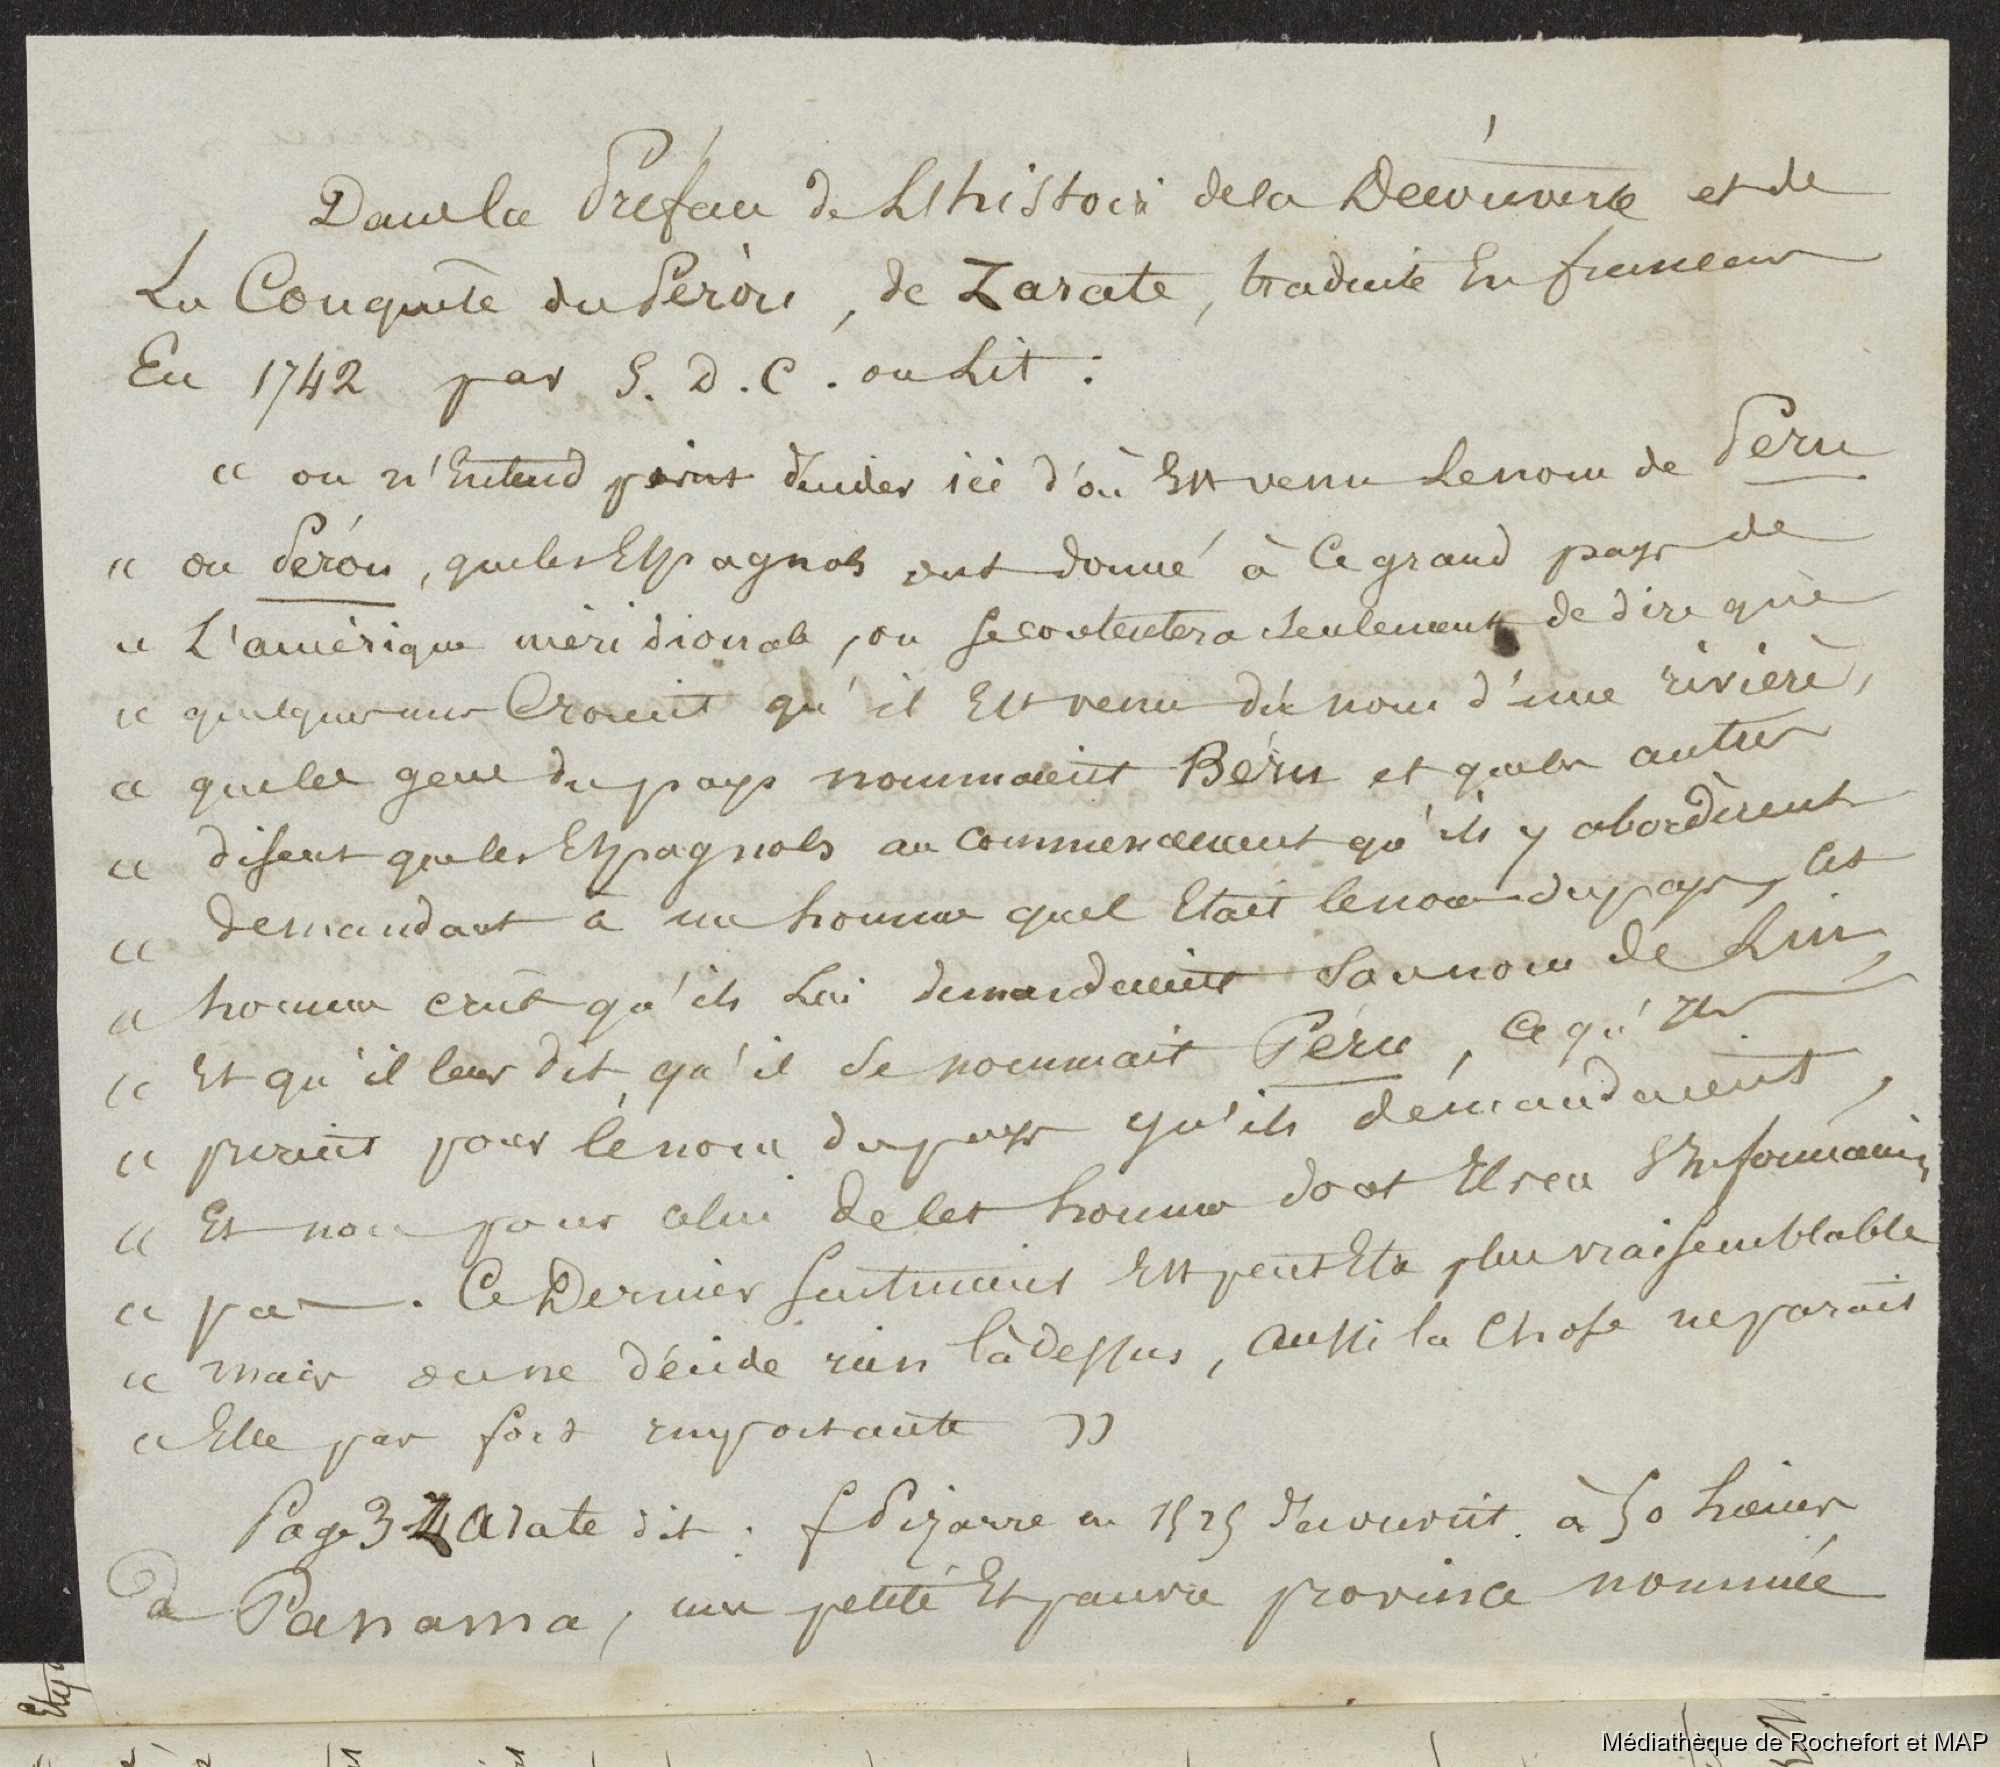 Dans la Préface de L'histoire de la Découverte et de
La Conquête du Pérou, de Zarate, traduite En francais
En 1742 par S. D. C. on Lit :
" on n'Entend point décider ici d'où Est venu Le nom de Peru
" ou Pérou, que les Espagnols ont donné à Ce grand pays de
" L'amérique méridionale, on se contentera seulement de dire que
" quelques uns Croient qu'il Est venu du nom d'une rivière,
" que les gens du pays nommaient Béru et que les autres
" disent que les Espagnols au commencement qu'ils y abordèrent
" demandant à un homme quel Etait le nom du pays, Cet
" homme crut qu'ils Lui demandaient Son nom de Lui,
" Et qu'il leur dit qu'il Se nommait Péru, Ce qu'Ils
" prirent pour le nom du pays qu'ils demandaient,
" Et non pour celui de Cet homme dont Ils ne S'Informaient
" pas. Ce Dernier Sentiment Est peut Etre plus vraisemblable
" mais on ne décide rien là dessus, aussi la Chose ne parait
" Elle pas fort importante "
Page 3 ZARate dit : f Pizarre en 1525 découvrit à 50 Lieues
de Panama, une petite Et pauvre province nommée
Médiathèque de Rochefort et MAP